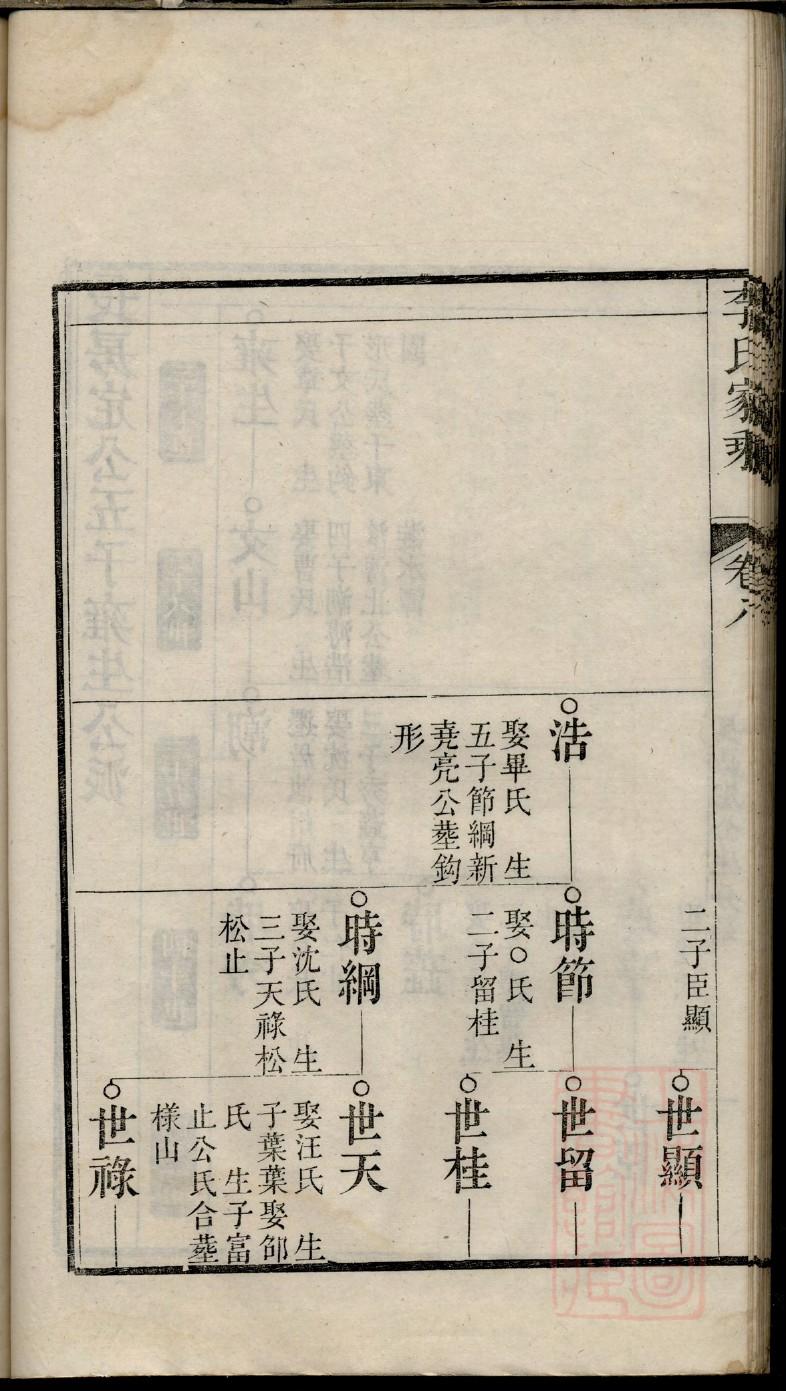 李氏家乘
卷六
二子臣顯
世顯
浩
娶畢氏 生
五子節綱新
堯亮公塟鈎
形
時節
娶○氏 生
二子留桂
世留
世桂
時綱
娶沈氏 生
三子天祿松
松止
世天
娶汪氏 生
子葉葉娶邰
氏 生子富
止公氏合塟
樣山
世祿